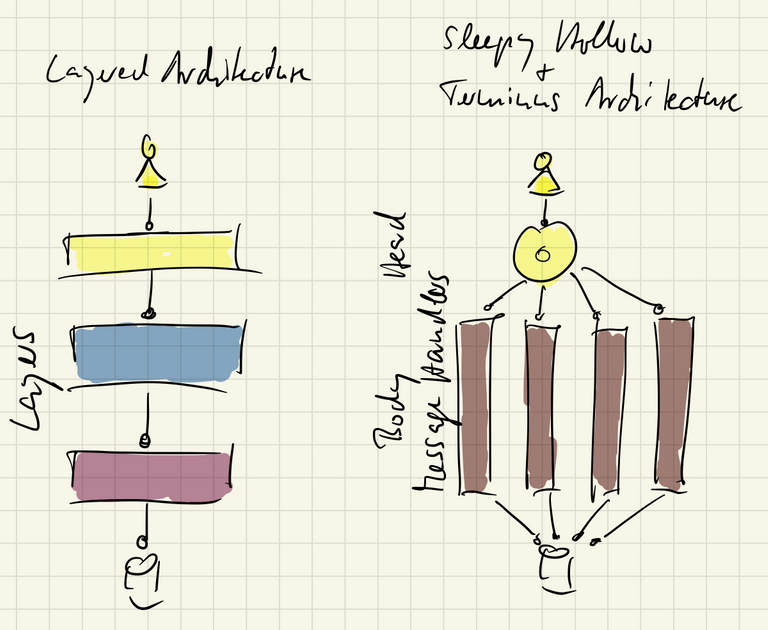 Layered Architekture
Sleepy Hollow
+
Terminus Architekture
Layers
Head
Body
Message Handlers